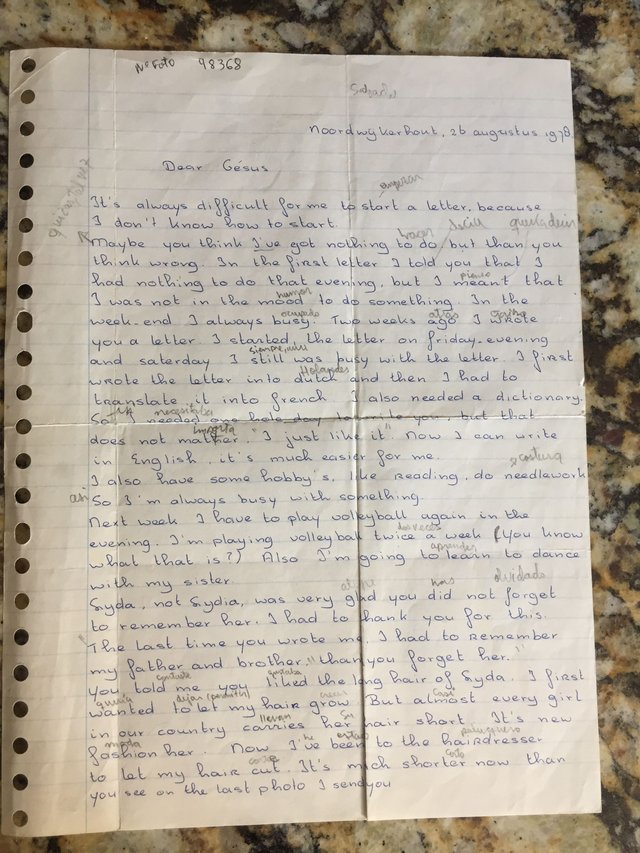 Nº Foto 98368
Noordwijkerhout, 26 augustus 1978.
Dear Gésus
empezar
It's always difficult for me to start a letter, because
I don't know how to start.
hacer
Maybe you think I've got nothing to do but than you
think wrong. In the first letter I told you that I
had nothing to do that evening, but I meant that
humor
I was not in the mood to do something. In the
ocupado
week-end I always busy. Two weeks ago I wrote
you a letter. I started the letter on friday-evening
and saterday I still was busy with the letter. I first
Holandes
wrote the letter into dutch and then I had to
translate it into french. I also needed a dictionary.
necesitaba
So I needed one hole day to write you, but that
importa
does not mather. "I just like it". Now I can write
in English, it's much easier for me.
costura
I also have some hobby's, like Reading, do needlework
So I'm always busy with something.
Next week I have to play volleyball again in the
dos veces
evening. I'm playing volleyball twice a week (you know
aprender
what that is?) Also I'm going to learn to dance
with my sister
olvidado
Syda, not Sydia, was very glad you did not forget
to remember her. I had to thank you for this.
The last time you wrote me, I had to remember
my father and brother, "than you forget her."
gustaba
You told me you liked the long hair of Syda. I first
quería dejar (permitir) crecer Casi
wanted to let my hair grow. But almost every girl
llevan su
in our country carries her hair short. It's new
he estado
fashion her. Now I've been to the hairdresser
corto
to let my hair cut. It's much shorter now than
you see on the last photo I send you